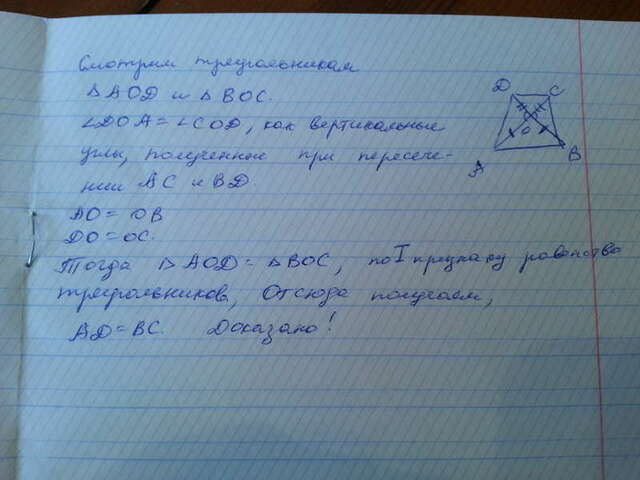 Смотрим треугольникам
△AOD и △BOC.
∠DOA = ∠COD, как вертикальные
углы, полученные при пересече-
нии AC и BD.
AO = OB
DO = OC.
Тогда △AOD = △BOC, по I признаку равенства
треугольников, Отсюда получаем,
AD = BC. Доказано!
D C
O
A B